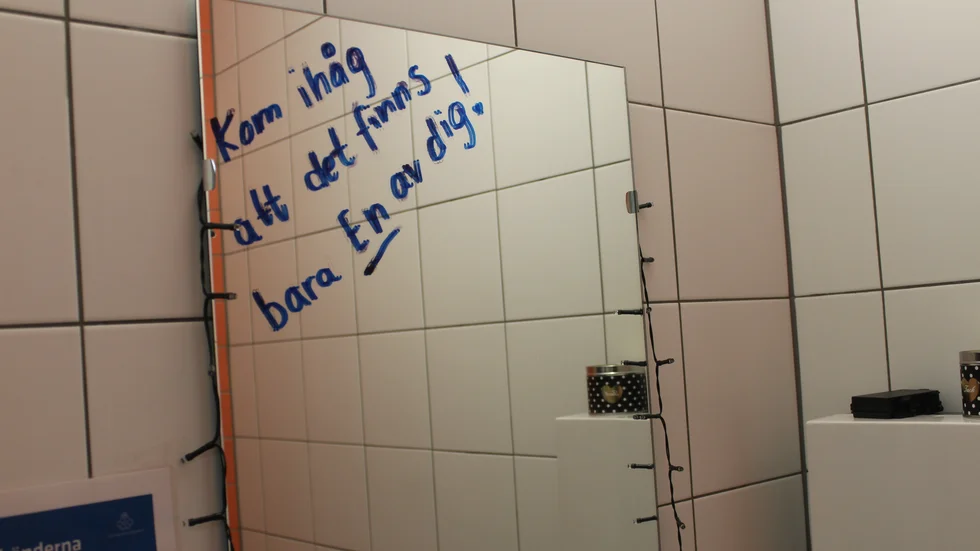 Kom ihåg
att det finns
bara En av dig!